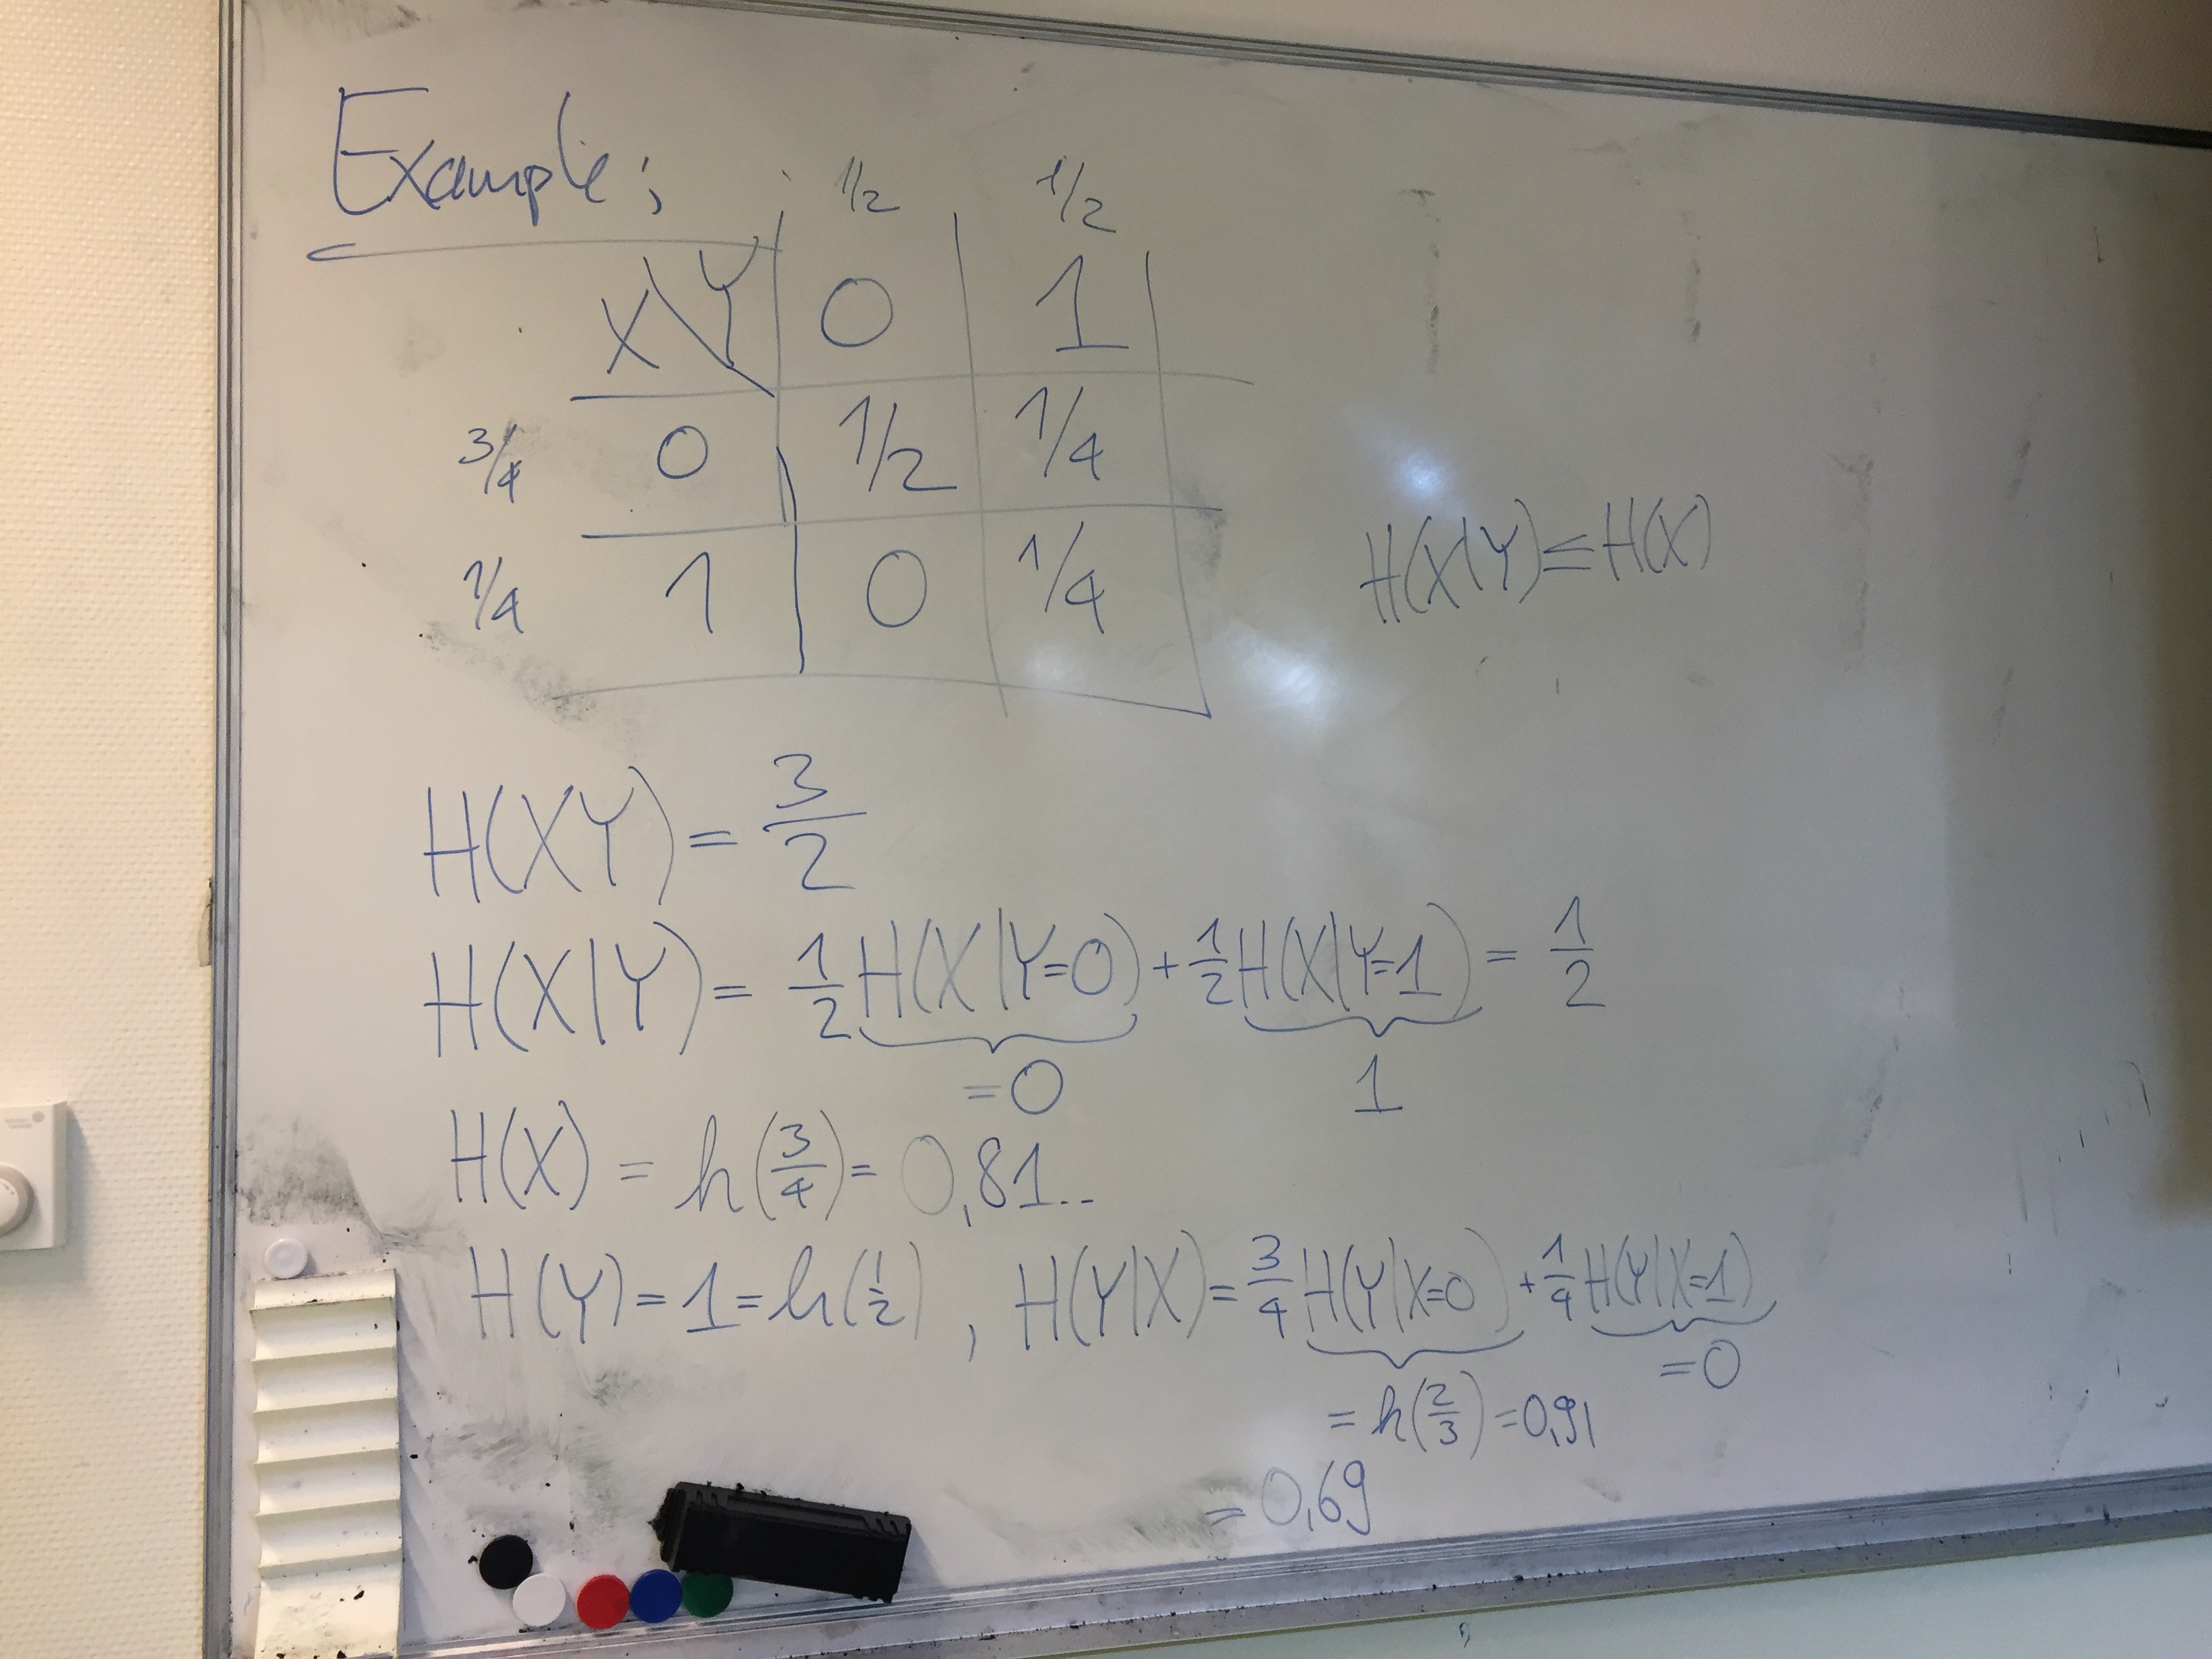 Example:
1/2 1/2
X\Y 0 1
3/4 0 1/2 1/4
1/4 1 0 1/4
H(X|Y) ≤ H(X)
H(XY) = 3/2
H(X|Y) = 1/2 H(X|Y=0) + 1/2 H(X|Y=1) = 1/2
=0 1
H(X) = h(3/4) = 0,81..
H(Y) = 1 = h(1/2) , H(Y|X) = 3/4 H(Y|X=0) + 1/4 H(Y|X=1)
=0
= h(2/3) = 0,91
= 0,69